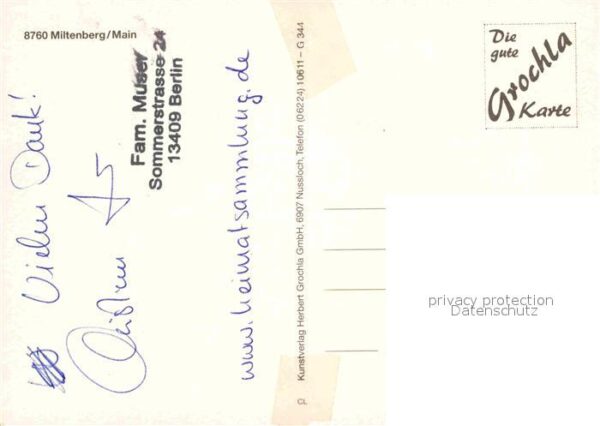 8760 Miltenberg/Main
Vielen Dank!
Fam. Muser
Sommerstrasse 24
13409 Berlin
www.heimatsammlung.de
Kunstverlag Herbert Grochla GmbH, 6907 Nussloch, Telefon (06224) 10611 – G 344
Die
gute
Grochla
Karte
privacy protection
Datenschutz